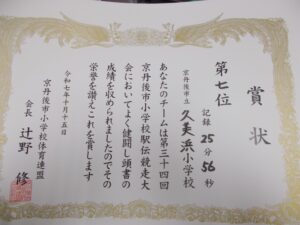 賞状
第七位
記録 25分56秒
京丹後市立 久美浜小学校
あなたのチームは第三十四回
京丹後市小学校駅伝競走大
会においてよく健闘し頭書の
成績を収められましたのでその
栄誉を讃えこれを賞します
令和七年十月十五日
京丹後市小学校体育連盟
会長 辻野 修